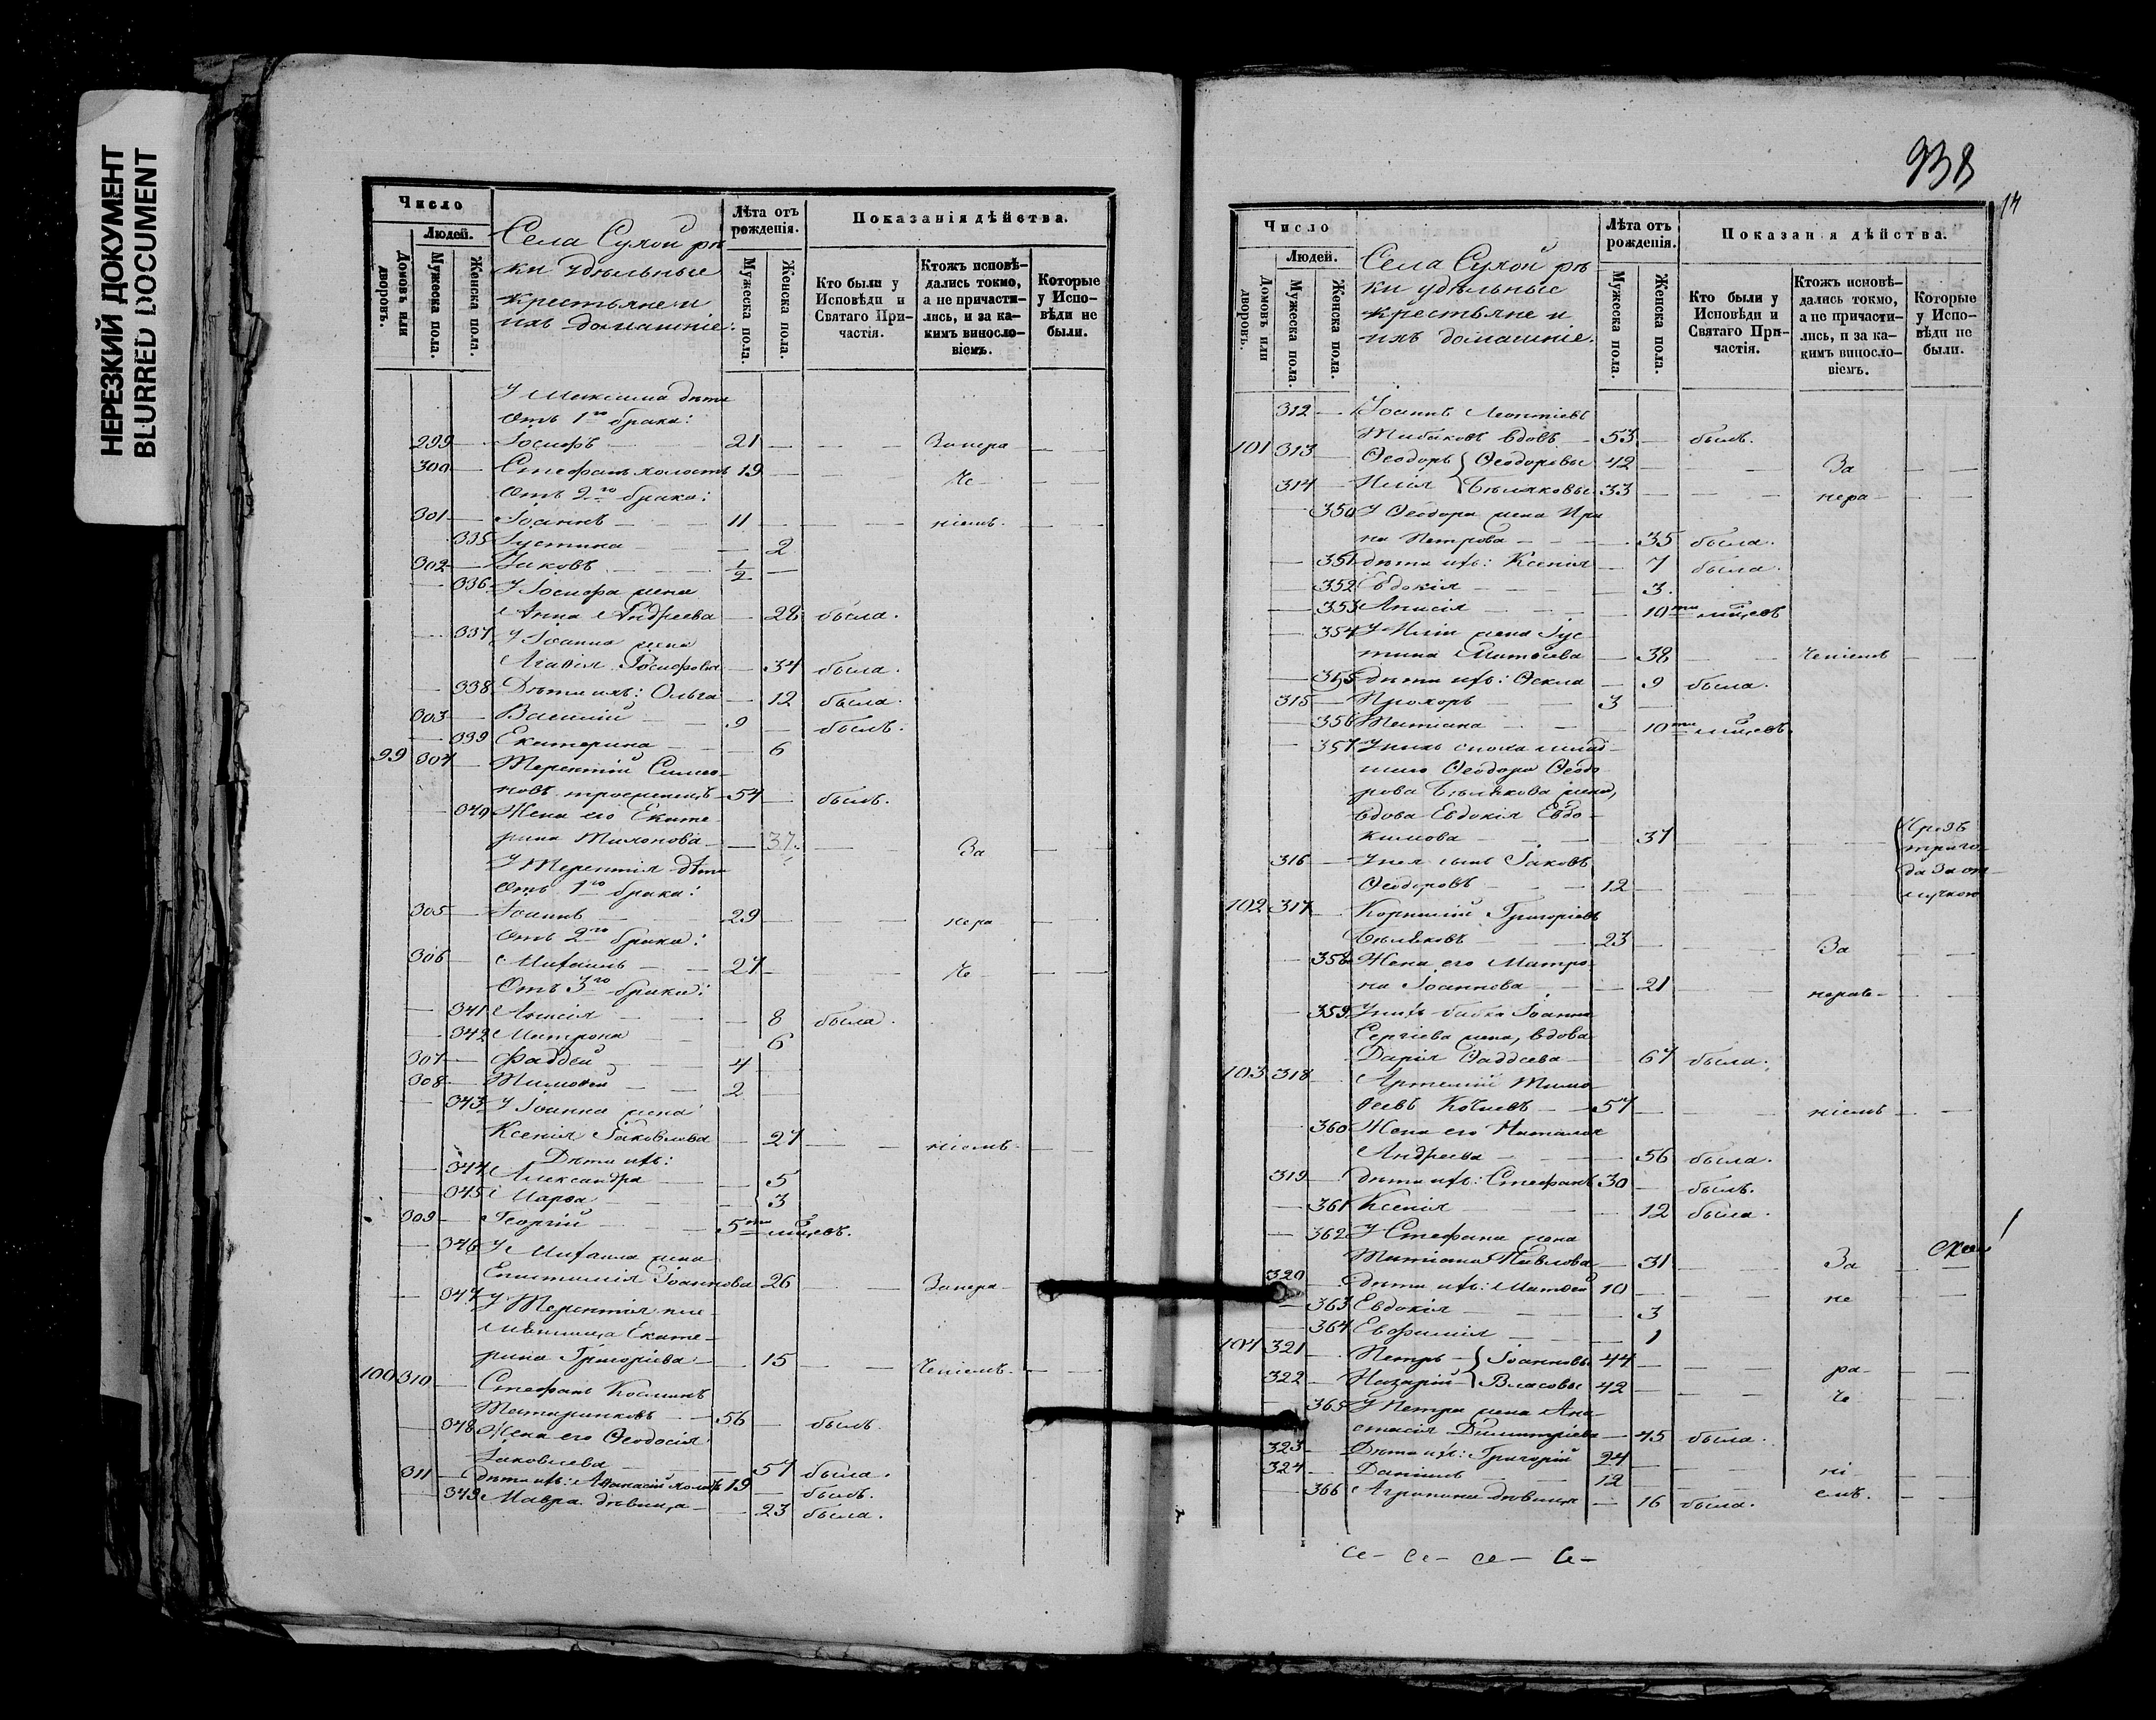 НЕРЕЗКИЙ ДОКУМЕНТ
BLURRED DOCUMENT
Число
Людей.
Домовъ или дворовъ.
Мужеска пола.
Женска пола.
Села Сухой рѣ
ки удѣльные
крестьяне и
ихъ домашніе:
Лѣта отъ рожденія.
Мужеска пола.
Женска пола.
Показанія дѣйства.
Кто были у Исповѣди и Святаго Причастія.
Ктожъ исповѣдались токмо, а не причастились, и за какимъ винословіемъ.
Которые у Исповѣди не были.
У Максима дѣти
Отъ 1го брака:
299 Іосифъ 21 Занера
300 Стефанъ холостъ 19 че
Отъ 2го брака:
301 Іоаннъ 11 ніемъ.
335 Іустина 2
302 Іаковъ 1/2
336 У Іосифа жена
Анна Андреева 28 была.
337 У Іоанна жена
Агафія Іосифова 34 была.
338 Дѣти ихъ: Ольга 12 была.
303 Василій 9 былъ.
339 Екатерина 6
99 304 Терентій Симео-
новъ троеженецъ 54 былъ.
340 Жена его Екате-
рина Тихонова 37 За
У Терентія дѣти
Отъ 1го брака:
305 Іоаннъ 29 нера
Отъ 2го брака:
306 Михаилъ 27 че
Отъ 3го брака:
341 Анисія 8 была.
342 Матрона 6
307 Фаддей 4
308 Тимоѳей 2
343 У Іоанна жена
Ксенія Іаковлева 27 ніемъ.
Дѣти ихъ:
344 Александра 5
345 Марѳа 3
309 Георгій 5ти мѣсцевъ.
346 У Михаила жена
Епистимія Іоаннова 26 Занера
347 У Терентія пле-
мянница Екате-
рина Григорьева 15 Ченіемъ.
100 310 Стефанъ Косминъ
Татаринковъ 56 былъ.
348 Жена его Ѳеодосія
Іаковлева 57 была.
311 Дѣти ихъ: Аѳанасій холостъ 19 былъ.
349 Мавра дѣвица 23 была.
938
14
Число
Людей.
Домовъ или дворовъ.
Мужеска пола.
Женска пола.
Села Сухой рѣ
ки удѣльные
крестьяне и
ихъ домашніе.
Лѣта отъ рожденія.
Мужеска пола.
Женска пола.
Показан я дѣйства.
Кто были у Исповѣди и Святаго Причастія.
Ктожъ исповѣдались токмо, а не причастились, и за какимъ винословіемъ.
Которые у Исповѣди не были.
312 Іоаннъ Леонтіевъ
вдовъ 53 былъ.
101 313 Ѳеодоръ } Ѳеодоровы 42 За
314 Илія } Бѣляковы 33 нера
350 У Ѳеодора жена Ири
на Петрова 35 была.
351 дѣти ихъ: Ксенія 7 была.
352 Евдокія 3.
353 Анисія 10ти мѣсцевъ
354 У Иліи жена Іус
тина Матѳеева 38 ченіемъ
355 дѣти ихъ: Ѳекла 9 была.
315 Прохоръ 3
356 Татіана 10ти мѣсцевъ.
357 У нихъ сноха млад-
шаго Ѳеодора Ѳеодо
рова Бѣлякова жена,
вдова Евдокія Евдо-
кимова 37 Чрезъ
три го-
да За от-
лучкою
316 У нея сынъ Іаковъ
Ѳеодоровъ 12
102 317 Корнилій Григорьевъ
Бѣляковъ 23 За
358 Жена его Матро-
на Іоаннова 21 нераче-
359 У нихъ бабка Іоанна
Сергіева жена, вдова
Дарія Ѳаддеева 67 была.
103 318 Артемій Тимо-
ѳеевъ 57 ніемъ
360 Жена его Наталія
Андреева 56 была.
319 дѣти ихъ: Стефанъ 30 былъ.
361 Ксенія 12 была.
362 У Стефана жена
Татіана Павлова 31 За
320 дѣти ихъ: Матѳей 10 не
363 Евдокія 3
364 Евфимія 1
104 321 Петръ } Іоанновы 44 ра-
322 Назарій } Власовы 42 че
365 У Петра жена Ана
стасія Димитріева 45 была.
323 Дѣти ихъ: Григорій 24
324 Даніилъ 12 ні-
366 Агрипина дѣвица 16 была. емъ.
се- се- се- се-